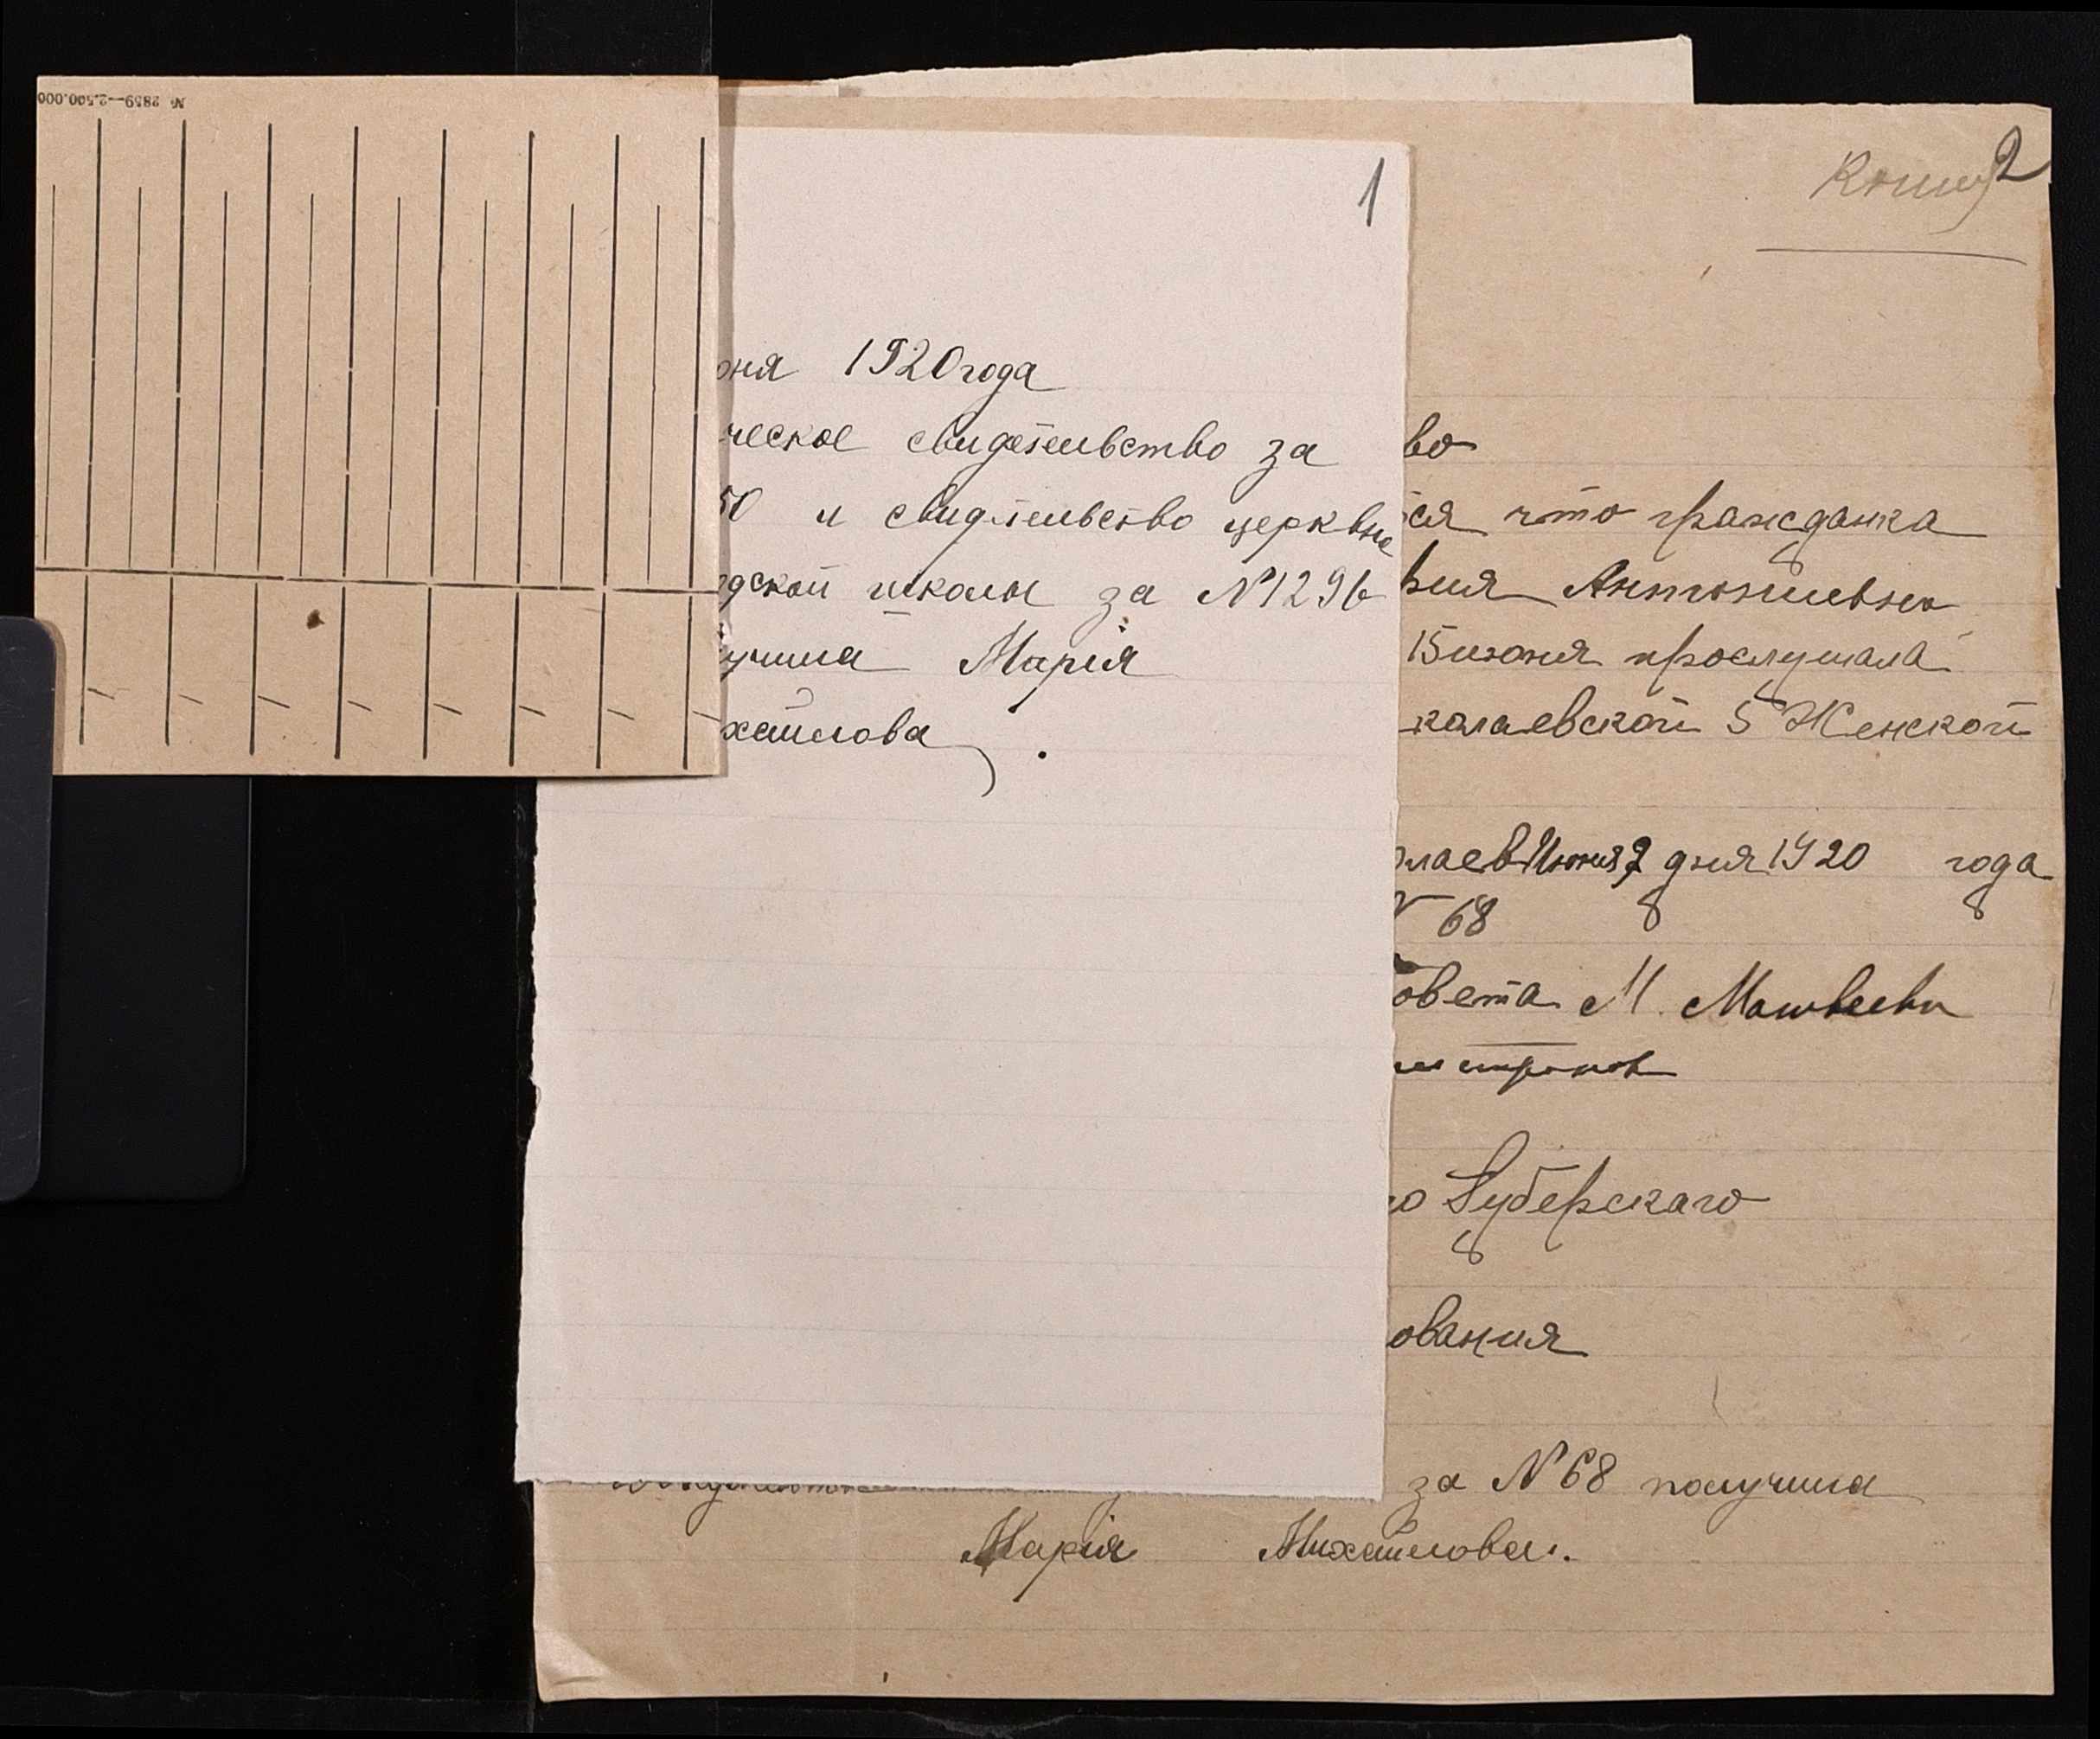 № 2859—2.500.000
1
оня 1920 года
ческое свидетельство за
50 и свидтельство церквно
дской школы за N 1296
учила Марія
хайлова
Копия 2
во
ся что гражданка
вия Антониевна
15 июня прослушала
колаевской 5 Женской
олаев Июня 2 дня 1920 года
N 68
овета М. Матвеева
о Губерскаго
ования
за N 68 получила
Марія Михайлова.